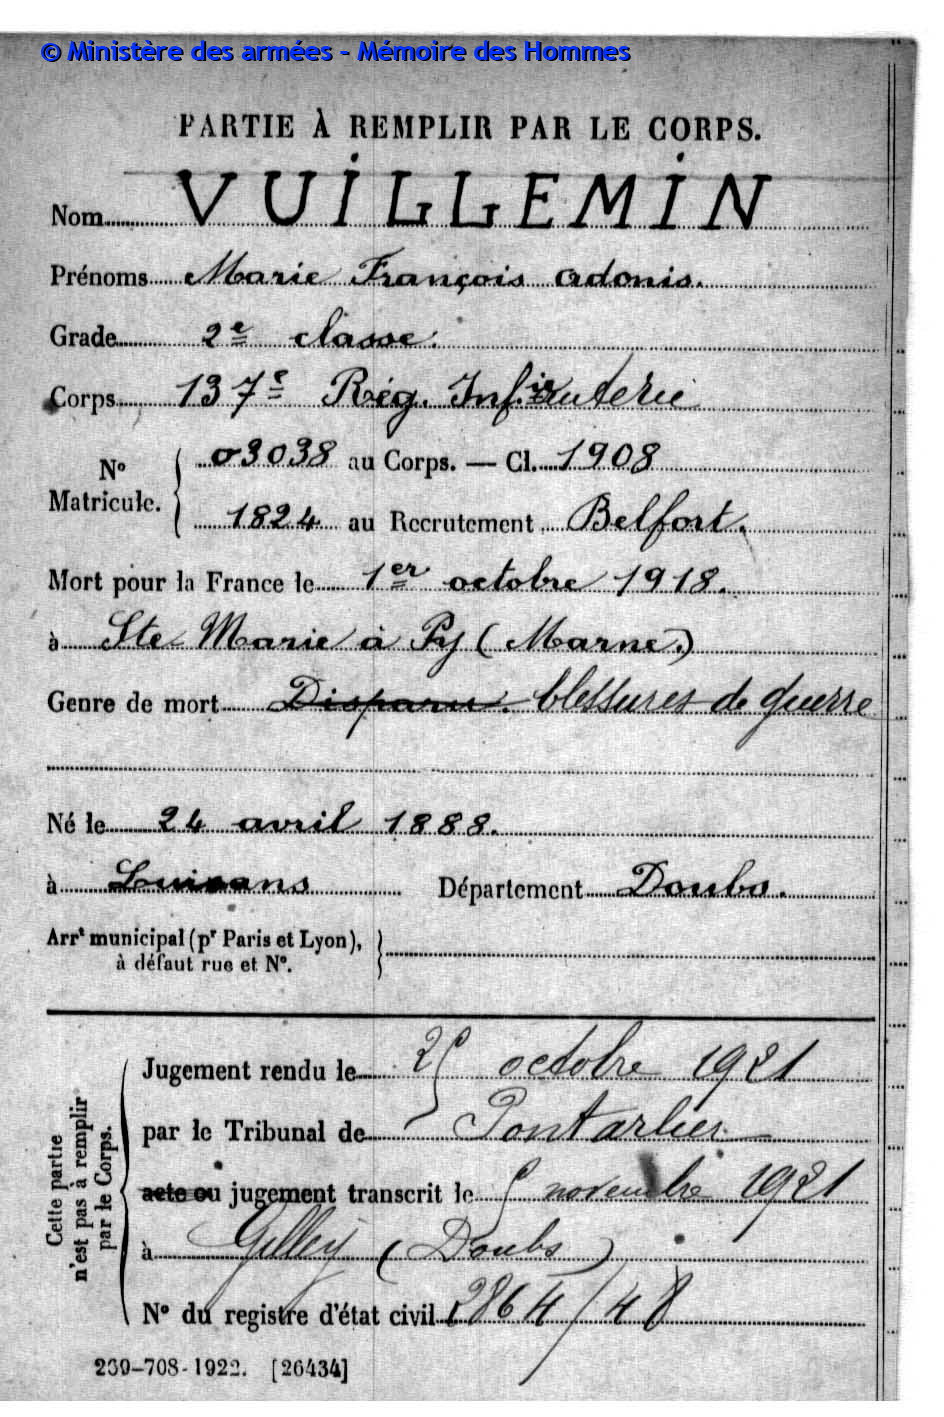 © Ministère des armées - Mémoire des Hommes
PARTIE À REMPLIR PAR LE CORPS.
Nom VUILLEMIN
Prénoms Marie François Adonis.
Grade 2e classe.
Corps 137e Rég. Inf. ie
N° Matricule. 03038 au Corps. — Cl. 1908
1824 au Recrutement Belfort.
Mort pour la France le 1er octobre 1918.
à Ste Marie à Py (Marne.)
Genre de mort Disparu. blessures de guerre
Né le 24 avril 1888.
à Luisans Département Doubs.
Arrt municipal (pr Paris et Lyon),
à défaut rue et N°.
Cette partie
n'est pas à remplir
par le Corps.
Jugement rendu le 25 octobre 1921
par le Tribunal de Pontarlier
acte ou jugement transcrit le 5 novembre 1921
à Gilley (Doubs)
N° du registre d'état civil 2864/48
239-708-1922. [26434]